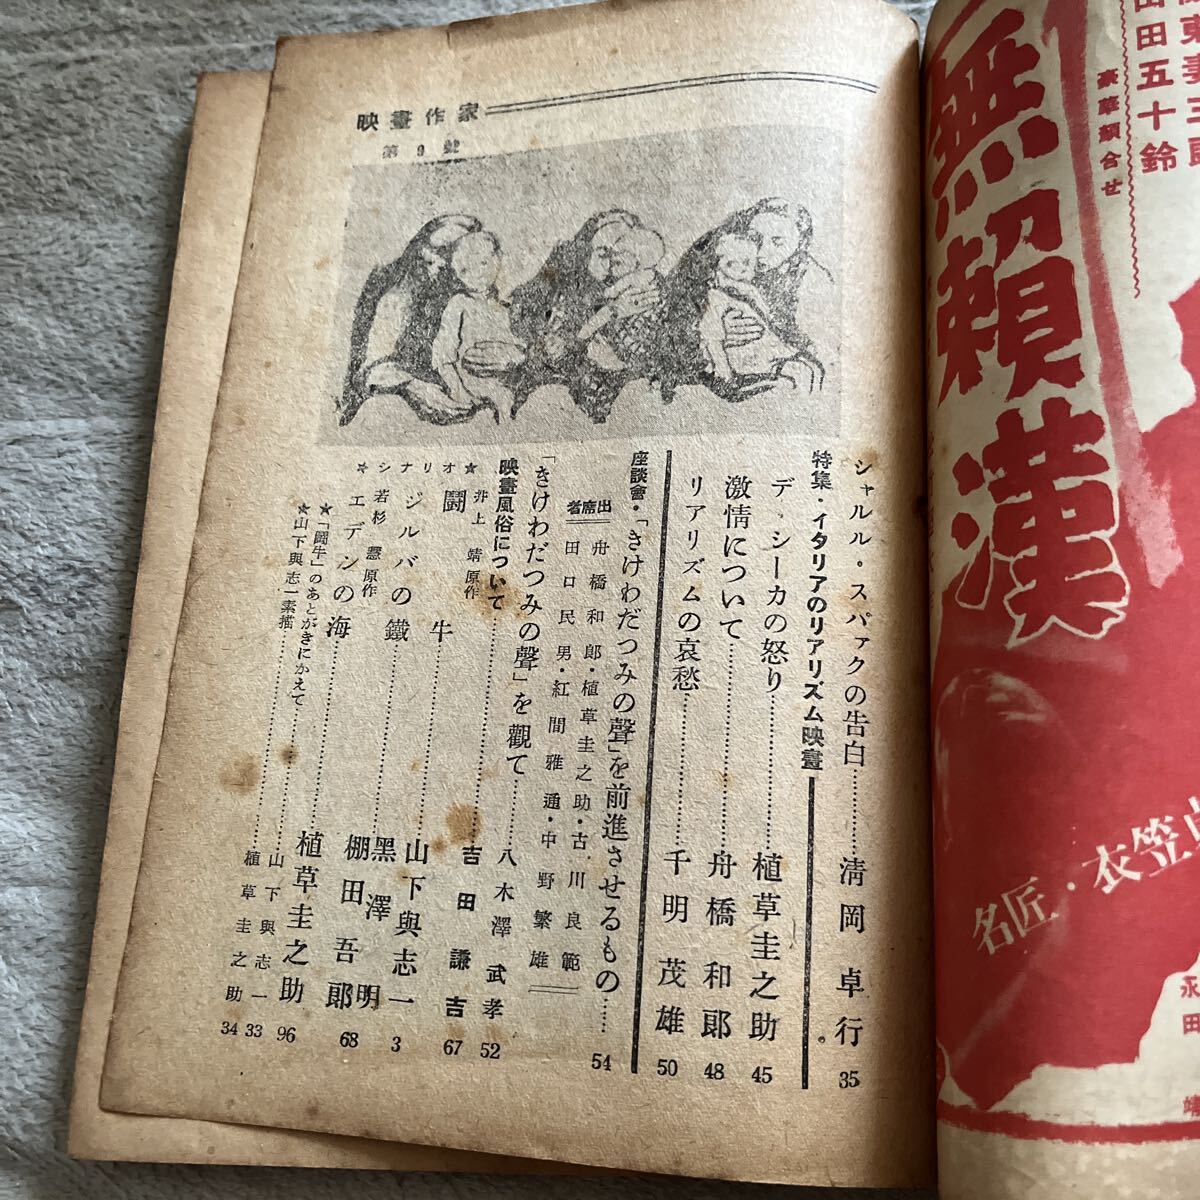 映畫作家
第9號
シャルル・スパァクの告白…………淸岡卓行 35
特集・イタリアのリアリズム映畫
デ・シーカの怒り…………植草圭之助 45
激情について…………舟橋和郎 48
リアリズムの哀愁…………千明茂雄 50
座談會・「きけわだつみの聲」を前進させるもの…… 54
出席者 舟橋和郎・植草圭之助・古川良範
田口民男・紅間雅通・中野繁雄
「きけわだつみの聲」を觀て…………八木澤武孝 52
映畫風俗について…………吉田謙吉 67
シナリオ
★井上靖原作
闘牛…………山下與志一 3
ジルバの鐵…………黑澤明
棚田吾郎 68
★若杉慧原作
エデンの海…………植草圭之助 96
★「闘牛」のあとがきにかえて…………山下與志一 33
★山下與志一素描…………植草圭之助 34
山田五十鈴
豪華顏合せ
無賴漢
名匠・衣笠
永
田
靖